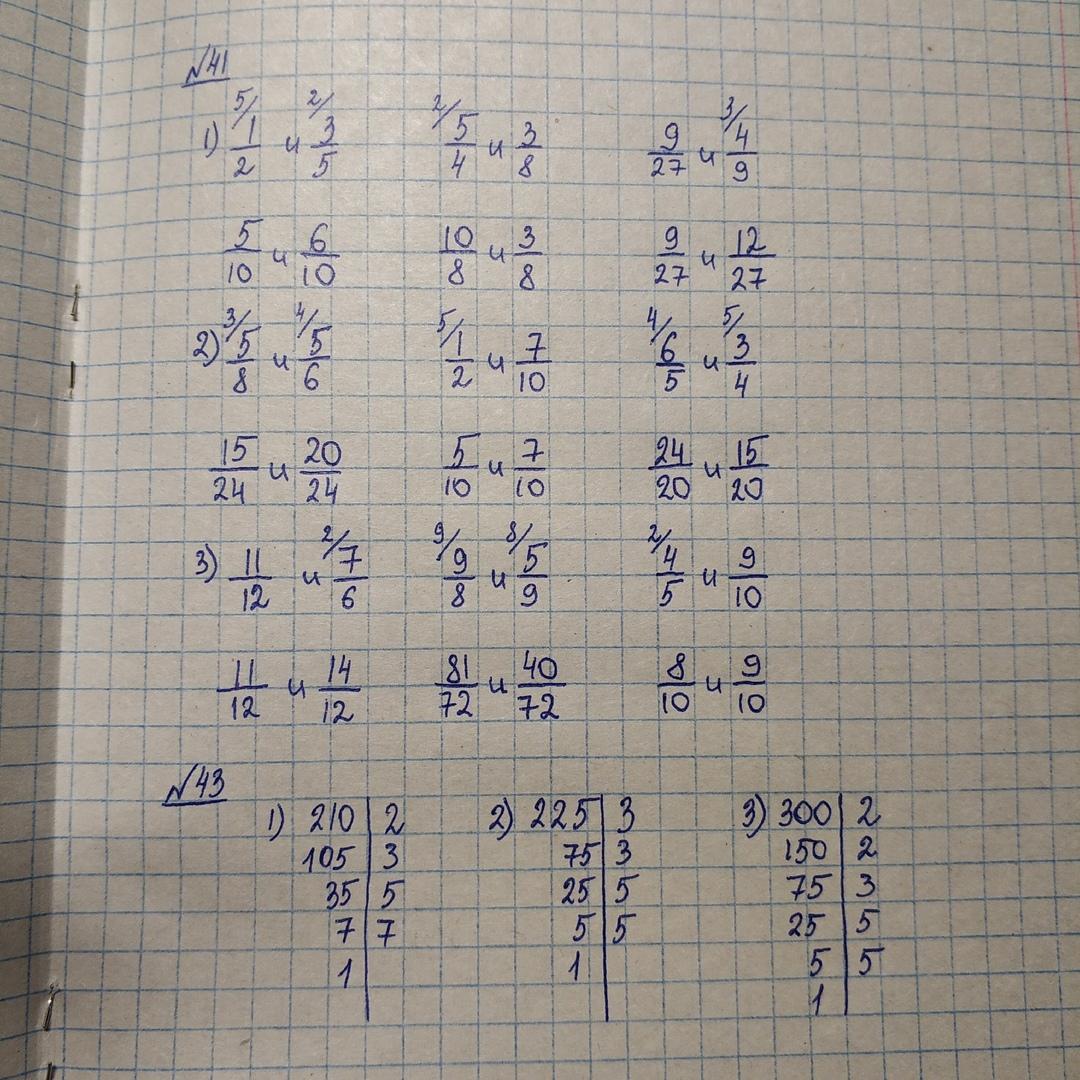 №41
1) 5/ 1/2 и 2/ 3/5 2/ 5/4 и 3/8 9/27 и 3/ 4/9
5/10 и 6/10 10/8 и 3/8 9/27 и 12/27
2) 3/ 5/8 и 4/ 5/6 5/ 1/2 и 7/10 4/ 6/5 и 5/ 3/4
15/24 и 20/24 5/10 и 7/10 24/20 и 15/20
3) 11/12 и 2/ 7/6 9/ 9/8 и 8/ 5/9 2/ 4/5 и 9/10
11/12 и 14/12 81/72 и 40/72 8/10 и 9/10
№43
1) 210 | 2 2) 225 | 3 3) 300 | 2
105 | 3 75 | 3 150 | 2
35 | 5 25 | 5 75 | 3
7 | 7 5 | 5 25 | 5
1 | 1 | 5 | 5
1 |